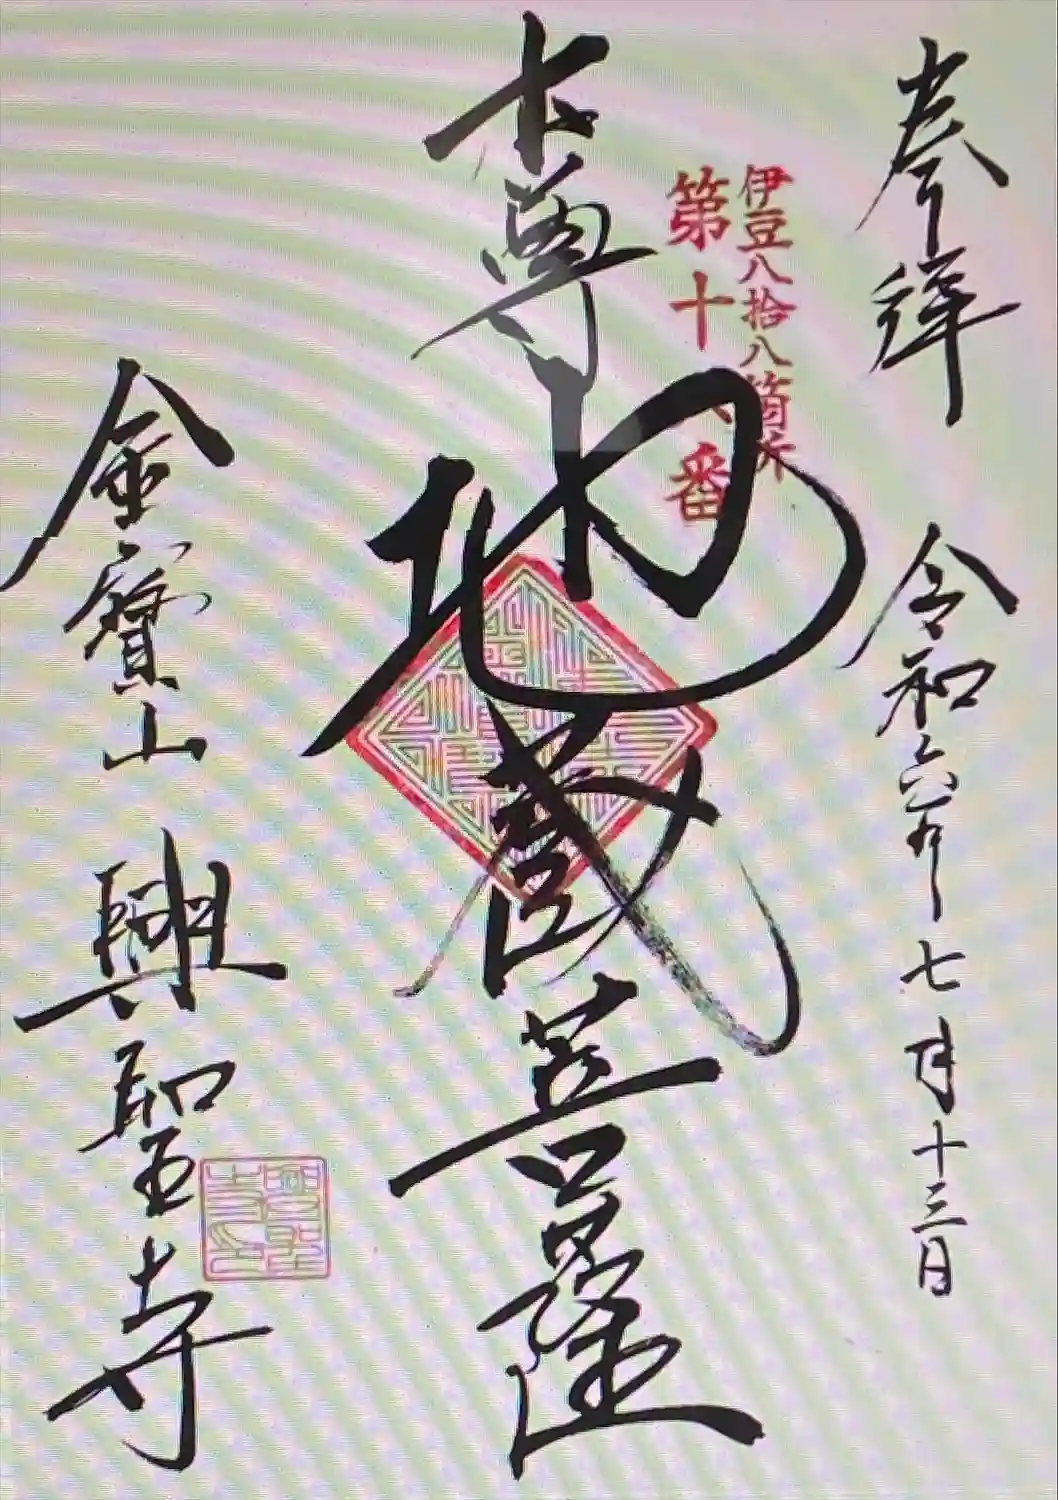 奉拝　令和六年七月十三日
伊豆八拾八箇所
第十八番
本尊地蔵菩薩
金寶山　興聖寺